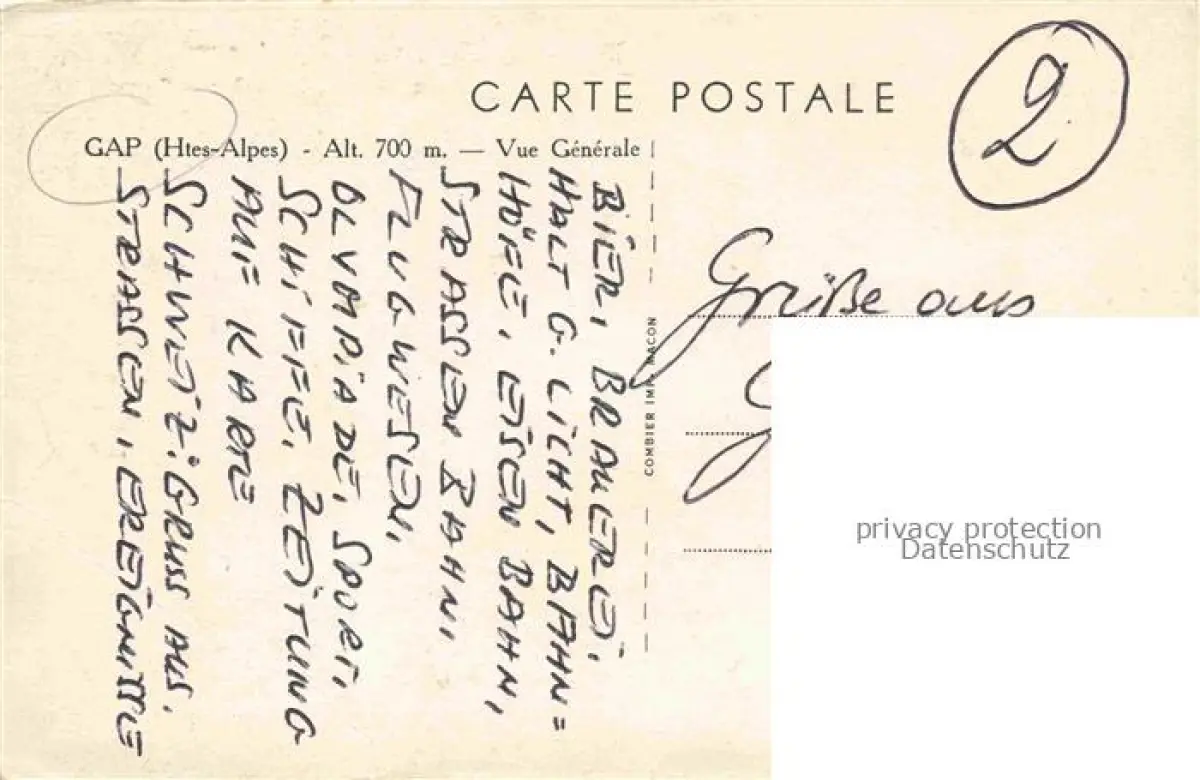 CARTE POSTALE
2
GAP (Htes-Alpes) - Alt. 700 m. — Vue Générale
BIER, BRAUEREI.
HALT G. LICHT, BAHN=
HÖFE, EISEN BAHN,
STRASSEN BAHN.
FLUGWESEN,
OLYMPIADE, SPORT,
SCHIFFE, ZEITUNG
AUF KARTE
SCHWEIZ. GRUSS AUS.
STRASSEN, EREIGNISSE
COMBIER IMP. MACON
Grüße aus
privacy protection
Datenschutz